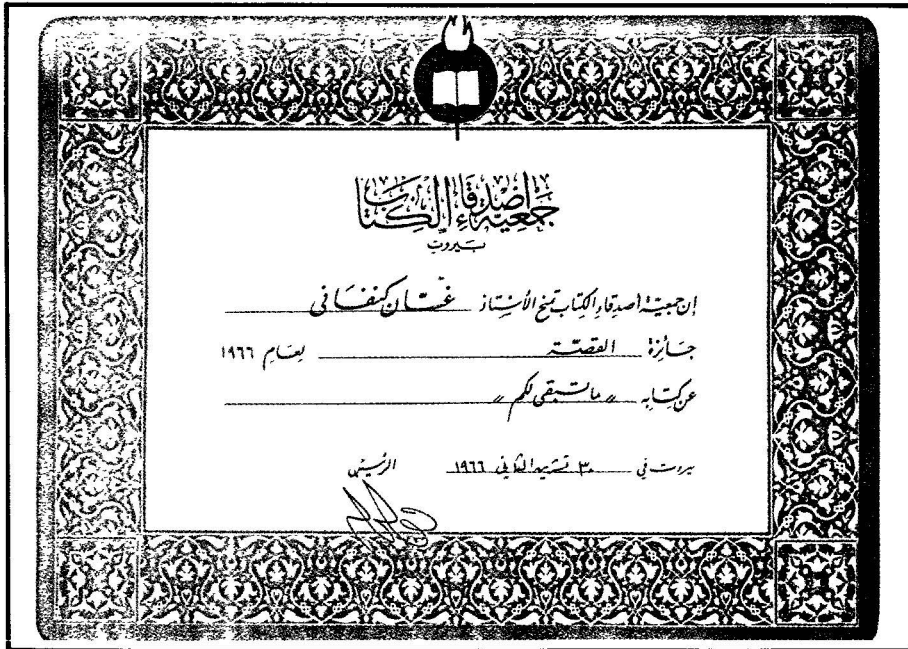 جمعية أصدقاء الكتاب
بيروت
إن جمعية أصدقاء الكتاب تمنح الأستاذ غسان كنفاني
جائزة القصة لعام ١٩٦٦
عن كتابه «ما تبقى لكم»
بيروت في ٣٠ تشرين الثاني ١٩٦٦ الرئيس